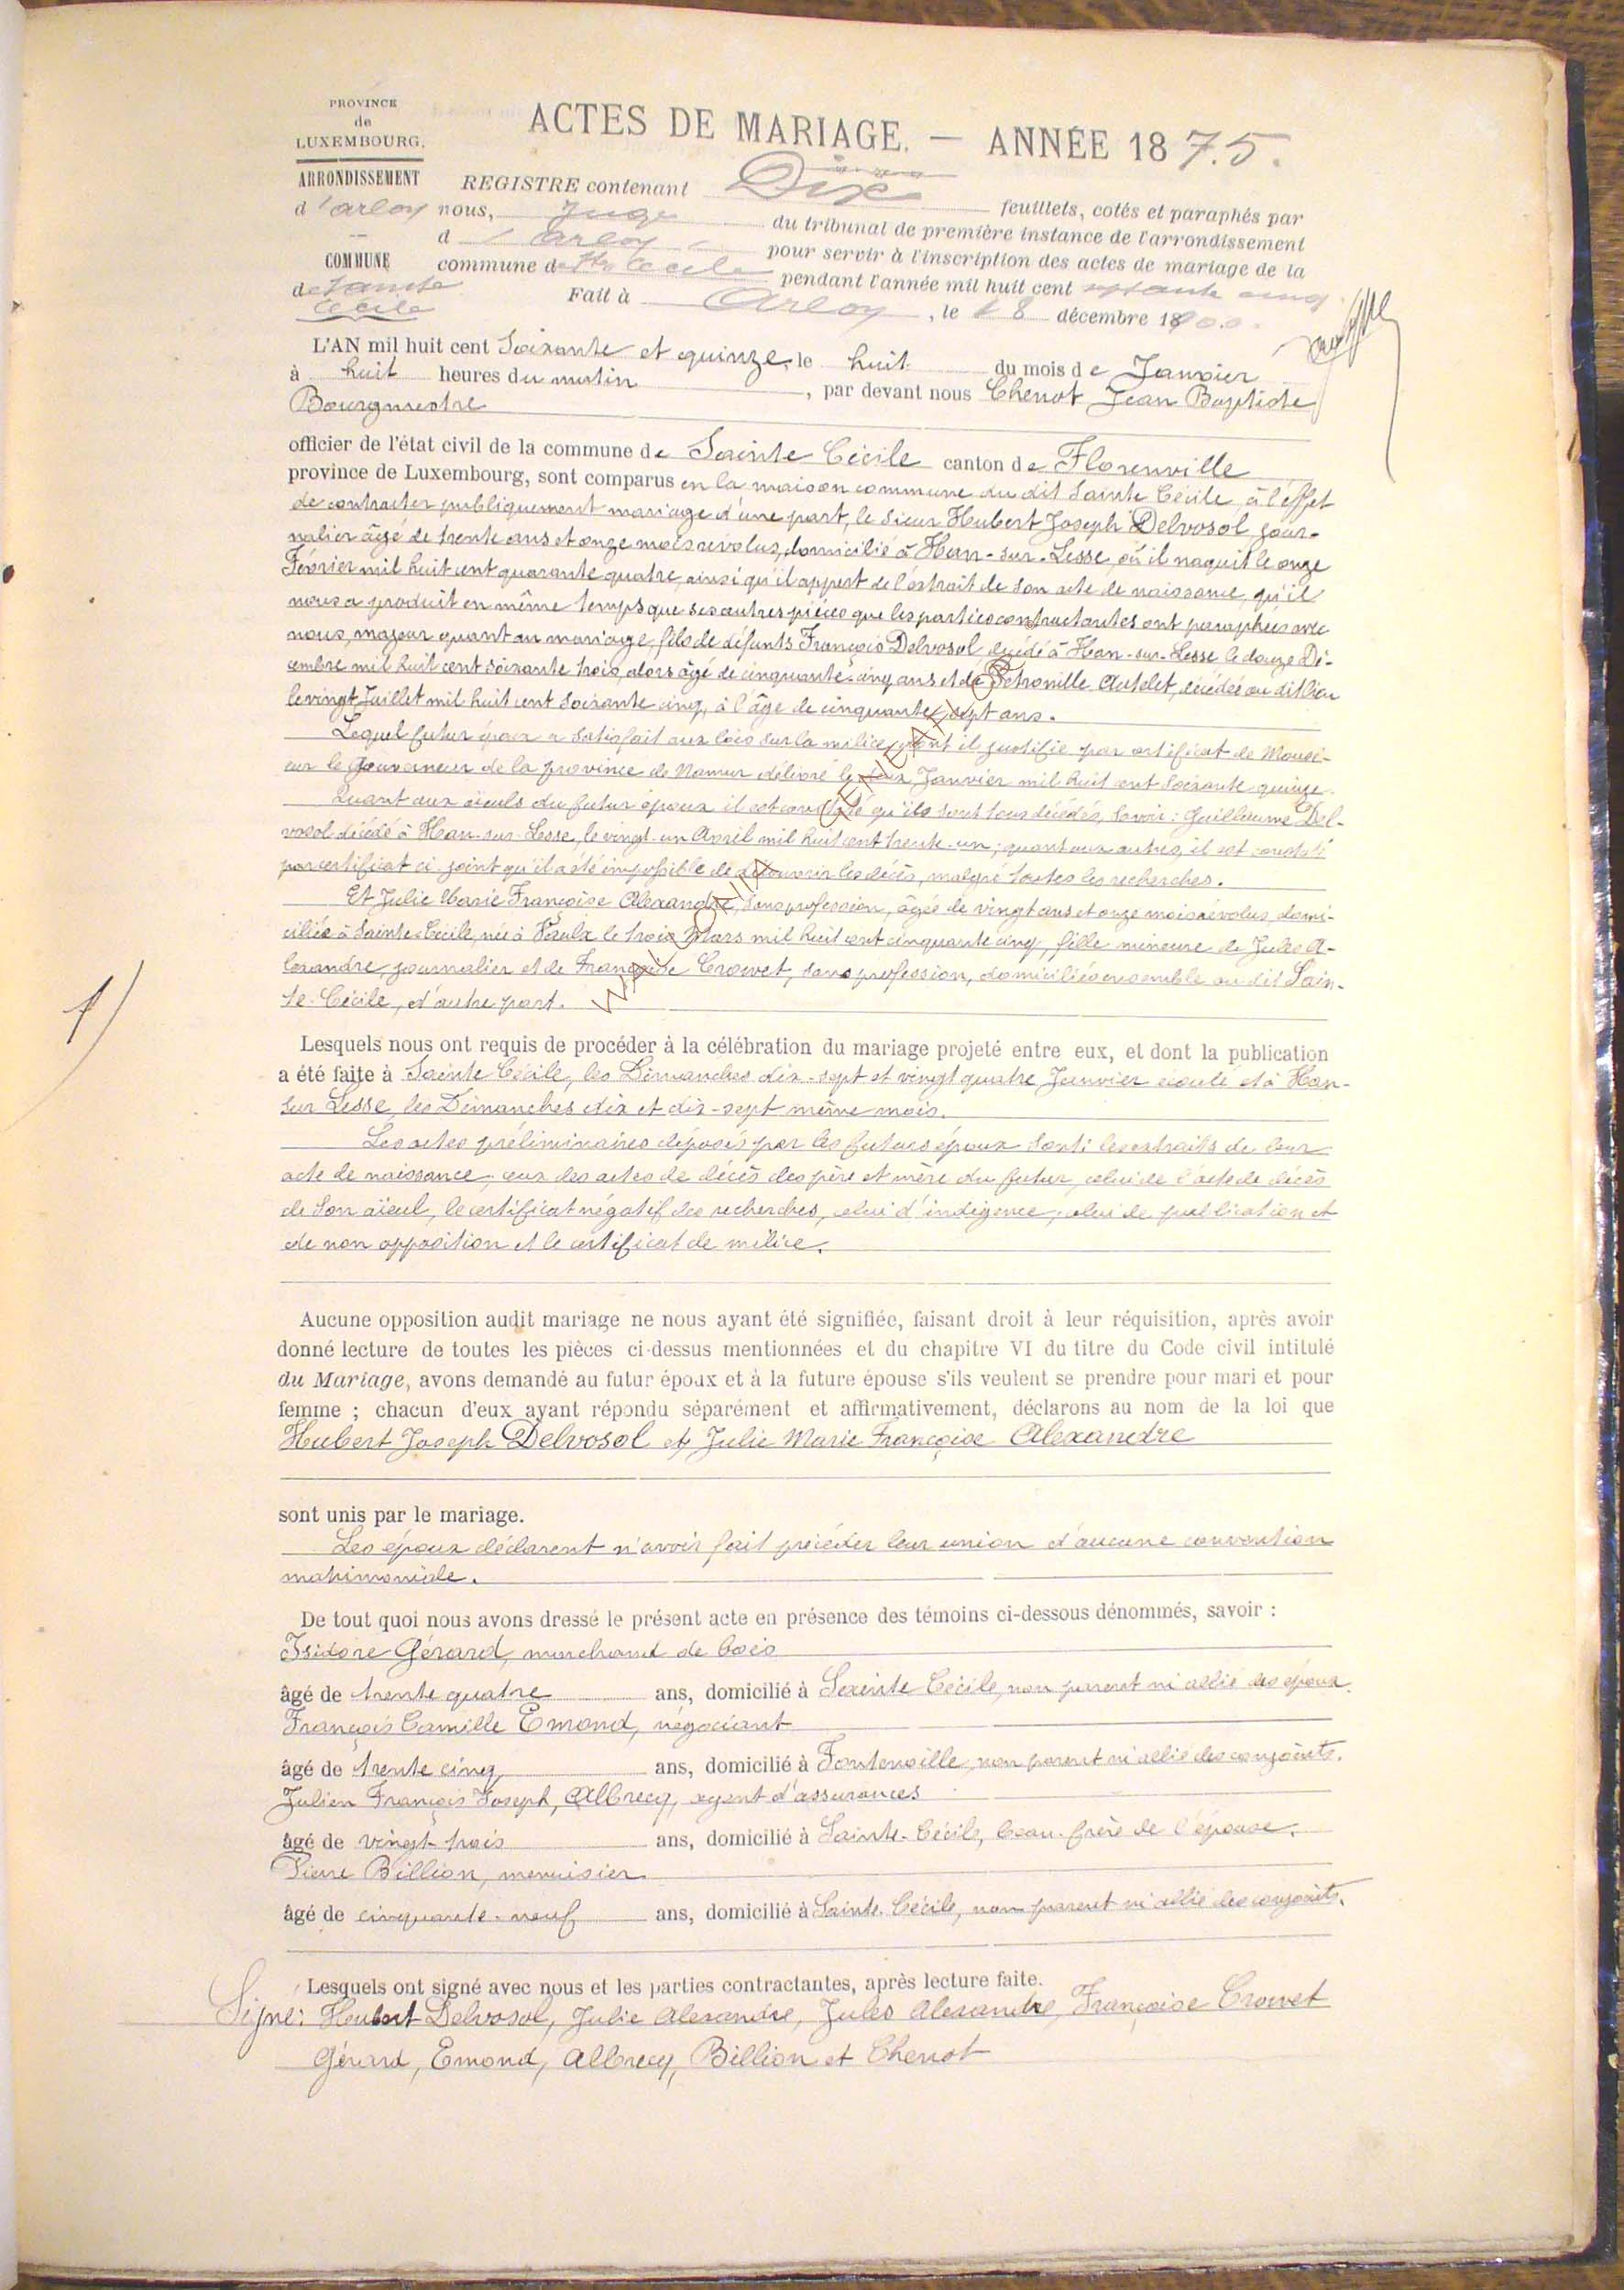 PROVINCE
de
LUXEMBOURG.
ARRONDISSEMENT
d'arlon
COMMUNE
de Sainte
Cécile
ACTES DE MARIAGE. — ANNÉE 187.5.
REGISTRE contenant Dix feuillets, cotés et paraphés par
nous, Juge du tribunal de première instance de l'arrondissement
d'arlon pour servir à l'inscription des actes de mariage de la
commune de Ste Cécile pendant l'année mil huit cent septante cinq
Fait à Arlon, le 8 décembre 1900.
L'AN mil huit cent Soixante et quinze, le huit du mois de Janvier
à huit heures du matin, par devant nous Chenot Jean Baptiste
Bourgmestre
officier de l'état civil de la commune de Sainte Cécile canton de Florenville
province de Luxembourg, sont comparus en la maison commune du dit Sainte Cécile, à l'effet
de contracter publiquement mariage d'une part, le sieur Hubert Joseph Delvosol jour-
nalier âgé de trente ans et onze mois révolus, domicilié à Han-sur-Lesse, où il naquit le onze
Février mil huit cent quarante quatre, ainsi qu'il appert de l'extrait de son acte de naissance, qu'il
nous a produit en même temps que ses autres pièces que les parties contractantes ont paraphées avec
nous, majeur quant au mariage, fils de défunts François Delvosol décédé à Han-sur-Lesse le douze Dé-
cembre mil huit cent soixante trois, alors âgé de cinquante-cinq ans et de Pétronille Autelet, décédée au dit lieu
le vingt Juillet mil huit cent soixante cinq, à l'âge de cinquante sept ans.
Lequel futur époux a satisfait aux lois sur la milice, dont il justifie par certificat de Monsi-
eur le Gouverneur de la province de Namur délivré le Janvier mil huit cent soixante quinze.
Quant aux aïeuls du futur époux il est constaté qu'ils sont tous décédés, savoir : Guillaume Del-
vosol décédé à Han-sur-Lesse, le vingt-un Avril mil huit cent trente-un ; quant aux autres, il est constaté
par certificat ci-joint qu'il a été impossible de découvrir les décès, malgré toutes les recherches.
Et Julie Marie Françoise Alexandre, sans profession, âgée de vingt ans et onze mois révolus, domi-
ciliée à Sainte-Cécile, née à Vaulx le trois Mars mil huit cent cinquante cinq, fille mineure de Jules A-
lexandre, journalier et de Françoise Crowet, sans profession, domiciliés ensemble au dit Sain-
te-Cécile, d'autre part.
WALLONIA GENEALOGIE
1)
Lesquels nous ont requis de procéder à la célébration du mariage projeté entre eux, et dont la publication
a été faite à Sainte Cécile, les Dimanches dix-sept et vingt quatre Janvier écoulé et à Han-
sur Lesse, les Dimanches dix et dix-sept même mois.
Les actes préliminaires déposés par les futurs époux sont : les extraits de leur
acte de naissance ; ceux des actes de décès des père et mère du futur, celui de l'acte de décès
de son aïeul, le certificat négatif des recherches, celui d'indigence, celui de publication et
de non opposition et le certificat de milice.
Aucune opposition audit mariage ne nous ayant été signifiée, faisant droit à leur réquisition, après avoir
donné lecture de toutes les pièces ci-dessus mentionnées et du chapitre VI du titre du Code civil intitulé
du Mariage, avons demandé au futur époux et à la future épouse s'ils veulent se prendre pour mari et pour
femme ; chacun d'eux ayant répondu séparément et affirmativement, déclarons au nom de la loi que
Hubert Joseph Delvosol et Julie Marie Françoise Alexandre
sont unis par le mariage.
Les époux déclarent n'avoir fait précéder leur union d'aucune convention
matrimoniale.
De tout quoi nous avons dressé le présent acte en présence des témoins ci-dessous dénommés, savoir :
Isidore Gérard, marchand de bois
âgé de trente quatre ans, domicilié à Sainte Cécile, non parent ni allié des époux.
François Camille Emond, négociant
âgé de trente cinq ans, domicilié à Fontenoille, non parent ni allié des conjoints.
Julien François Joseph, Albrecq, agent d'assurances
âgé de vingt-trois ans, domicilié à Sainte-Cécile, beau-frère de l'épouse.
Pierre Billion, menuisier
âgé de cinquante-neuf ans, domicilié à Sainte-Cécile, non parent ni allié des conjoints.
Lesquels ont signé avec nous et les parties contractantes, après lecture faite.
Signé : Hubert Delvosol, Julie Alexandre, Jules Alexandre, Françoise Crowet
Gérard, Emond, Albrecq, Billion et Chenot